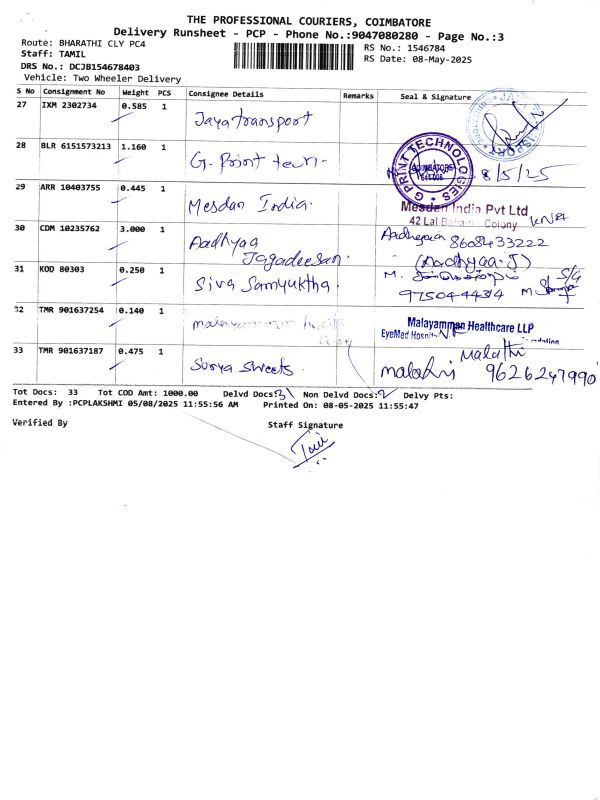 THE PROFESSIONAL COURIERS, COIMBATORE
Delivery Runsheet - PCP - Phone No.:9047080280 - Page No.:3
Route: BHARATHI CLY PC4
RS No.: 1546784
Staff: TAMIL
RS Date: 08-May-2025
DRS No.: DCJB154678403
Vehicle: Two Wheeler Delivery
S No Consignment No Weight PCS Consignee Details Remarks Seal & Signature
27 IXM 2302734 0.585 1 Jaya transport
28 BLR 6151573213 1.160 1 G. Print tech.
G PRINT TECHNOLOGIES
COIMBATORE
8/5/25
29 ARR 10403755 0.445 1 Mesdan India.
Mesdan India Pvt Ltd
42 Lal Colony
30 CDM 10235762 3.000 1 Aadhyaa Jagadeesan. 8608433222
(Aadhyaa-J)
31 KOD 80303 0.250 1 Siva Samyuktha. M.
9750444434 M.
32 TMR 901637254 0.140 1 malayamman health
Malayamman Healthcare LLP
EyeMed Hospit
33 TMR 901637187 0.475 1 Surya sweets. Malathi
9626247990
Tot Docs: 33 Tot COD Amt: 1000.00 Delvd Docs:31 Non Delvd Docs:2 Delvy Pts:
Entered By :PCPLAKSHMI 05/08/2025 11:55:56 AM Printed On: 08-05-2025 11:55:47
Verified By Staff Signature